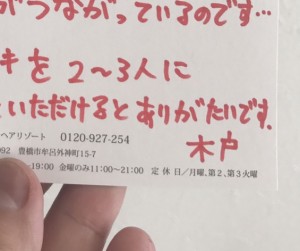 がつながっているのです…
キを2～3人に
いただけるとありがたいです。
木戸
ヘアリゾート 0120-927-254
092 豊橋市牟呂外神町15-7
19:00 金曜のみ11:00～21:00 定休日／月曜、第2、第3火曜